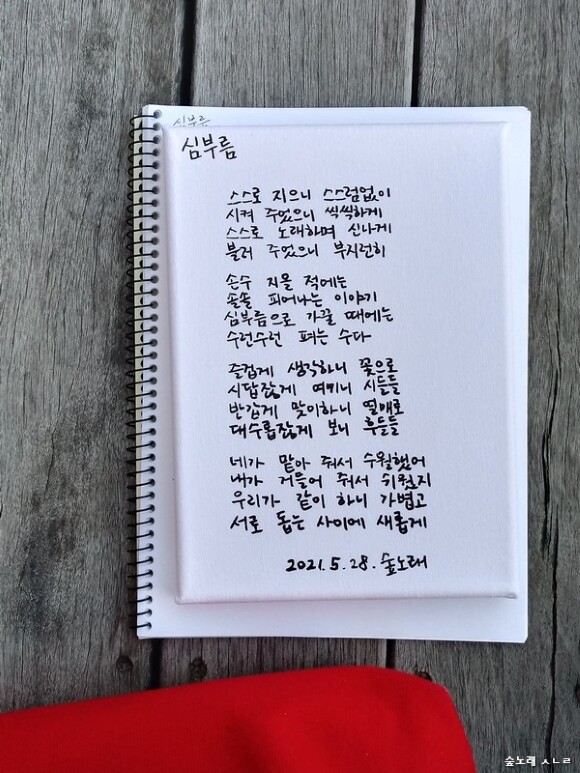 심부름
심부름
스스로 지으니 스스럼없이
시켜 주었으니 씩씩하게
스스로 노래하며 신나게
불러 주었으니 부지런히
손수 지을 적에는
솔솔 피어나는 이야기
심부름으로 가꿀 때에는
수런수런 펴는 수다
즐겁게 생각하니 꽃으로
시답잖게 여기니 시들들
반갑게 맞이하니 열매로
대수롭잖게 보니 후들들
네가 맡아 줘서 수월했어
내가 거들어 줘서 쉬웠지
우리가 같이 하니 가볍고
서로 돕는 사이에 새롭게
2021.5.28. 숲노래
숲노래 ㅅㄴㄹ